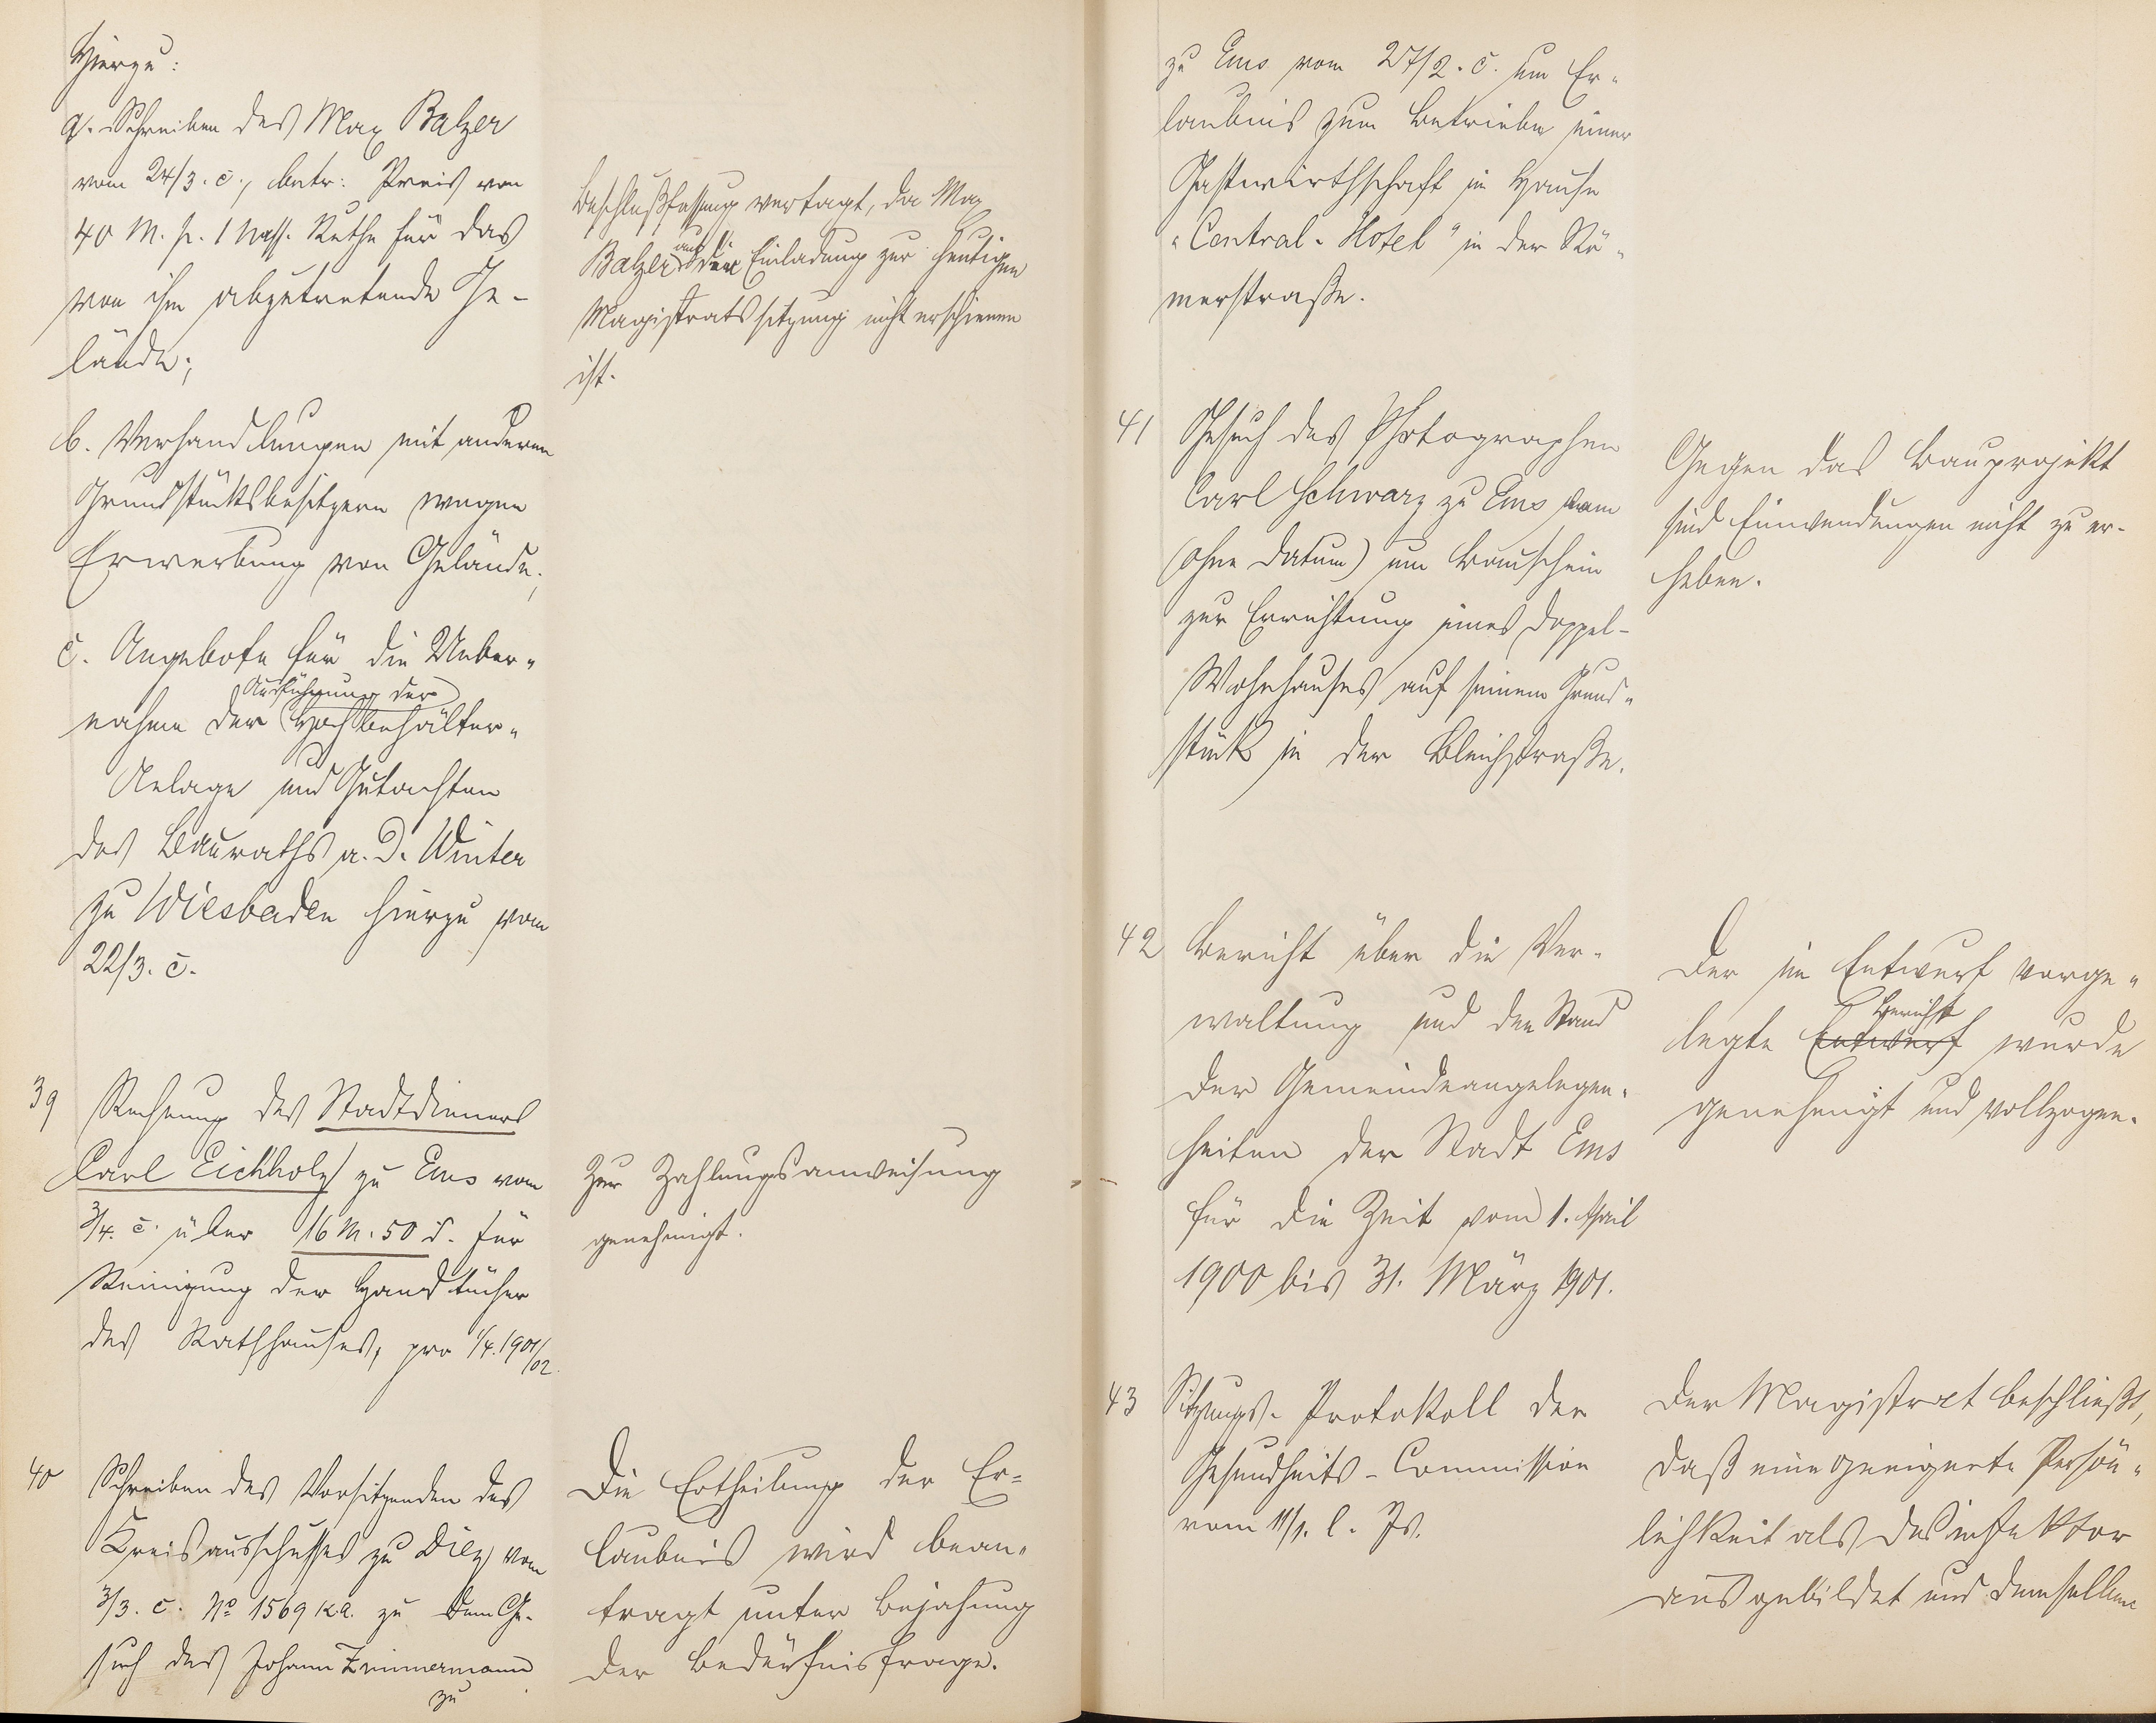 Hierzu:
a. Schreiben des Max Balzer
vom 24/3. c., betr: Preis von
40 M. p. 1 nass. Ruthe für das
von ihm abzutretende Ge-
lände;
Beschlußfassung vertagt, da Max
Balzer auf die Einladung zur heutigen
Magistratssitzung nicht erschienen
ist.
b. Verhandlungen mit anderen
Grundstücksbesitzern wegen
Erwerbung von Gelände;
c. Angebote für die Ueber-
Ausführung der
nahme der Hochbehälter-
Anlage und Gutachten
des Bauraths a. D. Winter
zu Wiesbaden hierzu vom
22/3. c.
39 Rechnung des Stadtdieners
Carl Eichholz zu Ems vom
3/4. c. über 16 M. 50 d. für
Reinigung der Handtücher
des Rathhauses, pro 1/4. 1901/02.
Zur Zahlungsanweisung
genehmigt.
40 Schreiben des Vorsitzenden des
Kreisausschusses zu Diez vom
3/3. c. No 1569 K.A. zu dem Ge-
such des Johann Zimmermann
zu
Die Ertheilung der Er-
laubnis wird bean-
tragt unter Bejahung
der Bedürfnisfrage.
zu Ems vom 27/2. c. um Er-
laubnis zum Betriebe einer
Gastwirthschaft im Hause
"Central-Hotel" in der Rö-
merstraße.
41 Gesuch des Photographen
Carl Schwarz zu Ems vom
(ohne Datum) um Bauschein
zur Errichtung eines Doppel-
Wohnhauses auf seinem Grund-
stück in der Bleichstraße.
Gegen das Bauprojekt
sind Einwendungen nicht zu er-
heben.
42 Bericht über die Ver-
waltung und den Stand
der Gemeindeangelegen-
heiten der Stadt Ems
für die Zeit vom 1. April
1900 bis 31. März 1901.
Der im Entwurf vorge-
Bericht
legte Entwurf wurde
genehmigt und vollzogen.
43 Sitzungs-Protokoll der
Gesundheits-Commission
vom 11/1. l. Js.
Der Magistrat beschließt,
daß eine geeignete Persön-
lichkeit als Desinfektor
ausgebildet und demselben